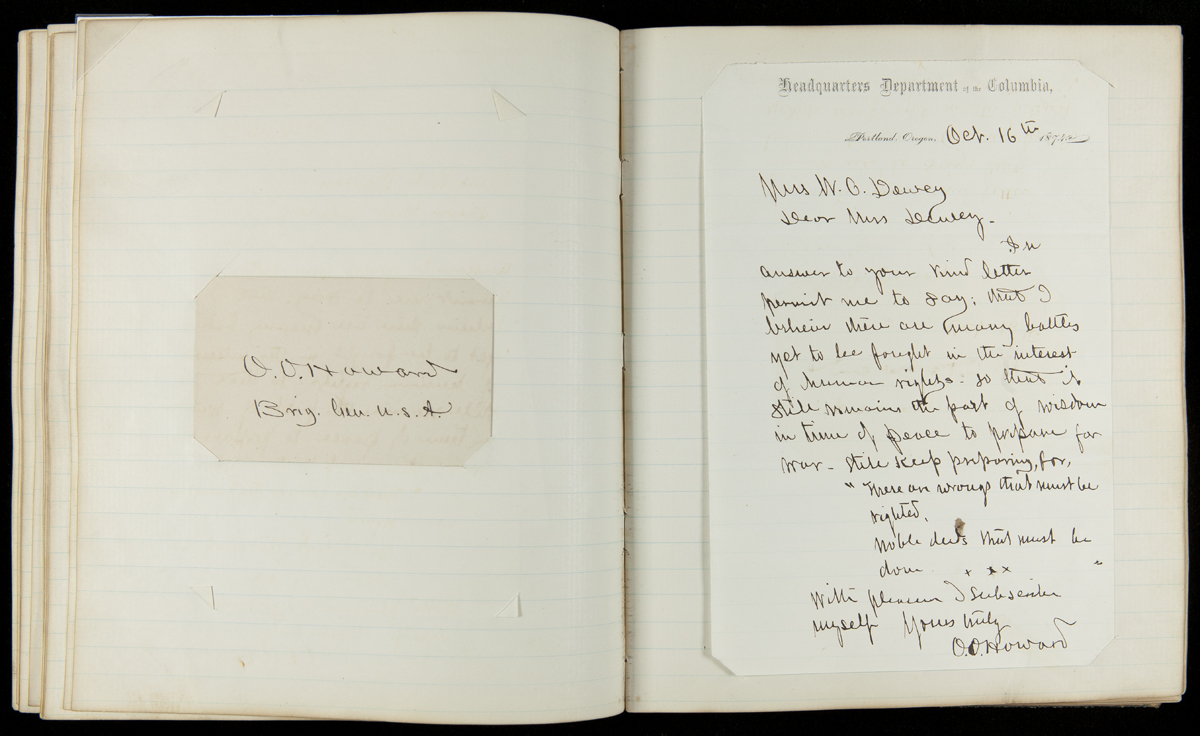 O. O. Howard
Brig. Gen. U. S. A.
Headquarters Department of the Columbia,
Portland, Oregon, Oct. 16th 187
Mrs W. O. Dewey
Dear Mrs Dewey -
In
answer to your kind letter
permit me to say; that I
believe there are many battles
yet to be fought in the interest
of human rights - so that it
still remains the part of wisdom
in time of peace to prepare for
war - still keep preparing, for,
" There are wrongs that must be
righted,
Noble deeds that must be
done x x x "
With pleasure I subscribe
myself Yours truly
O. O. Howard